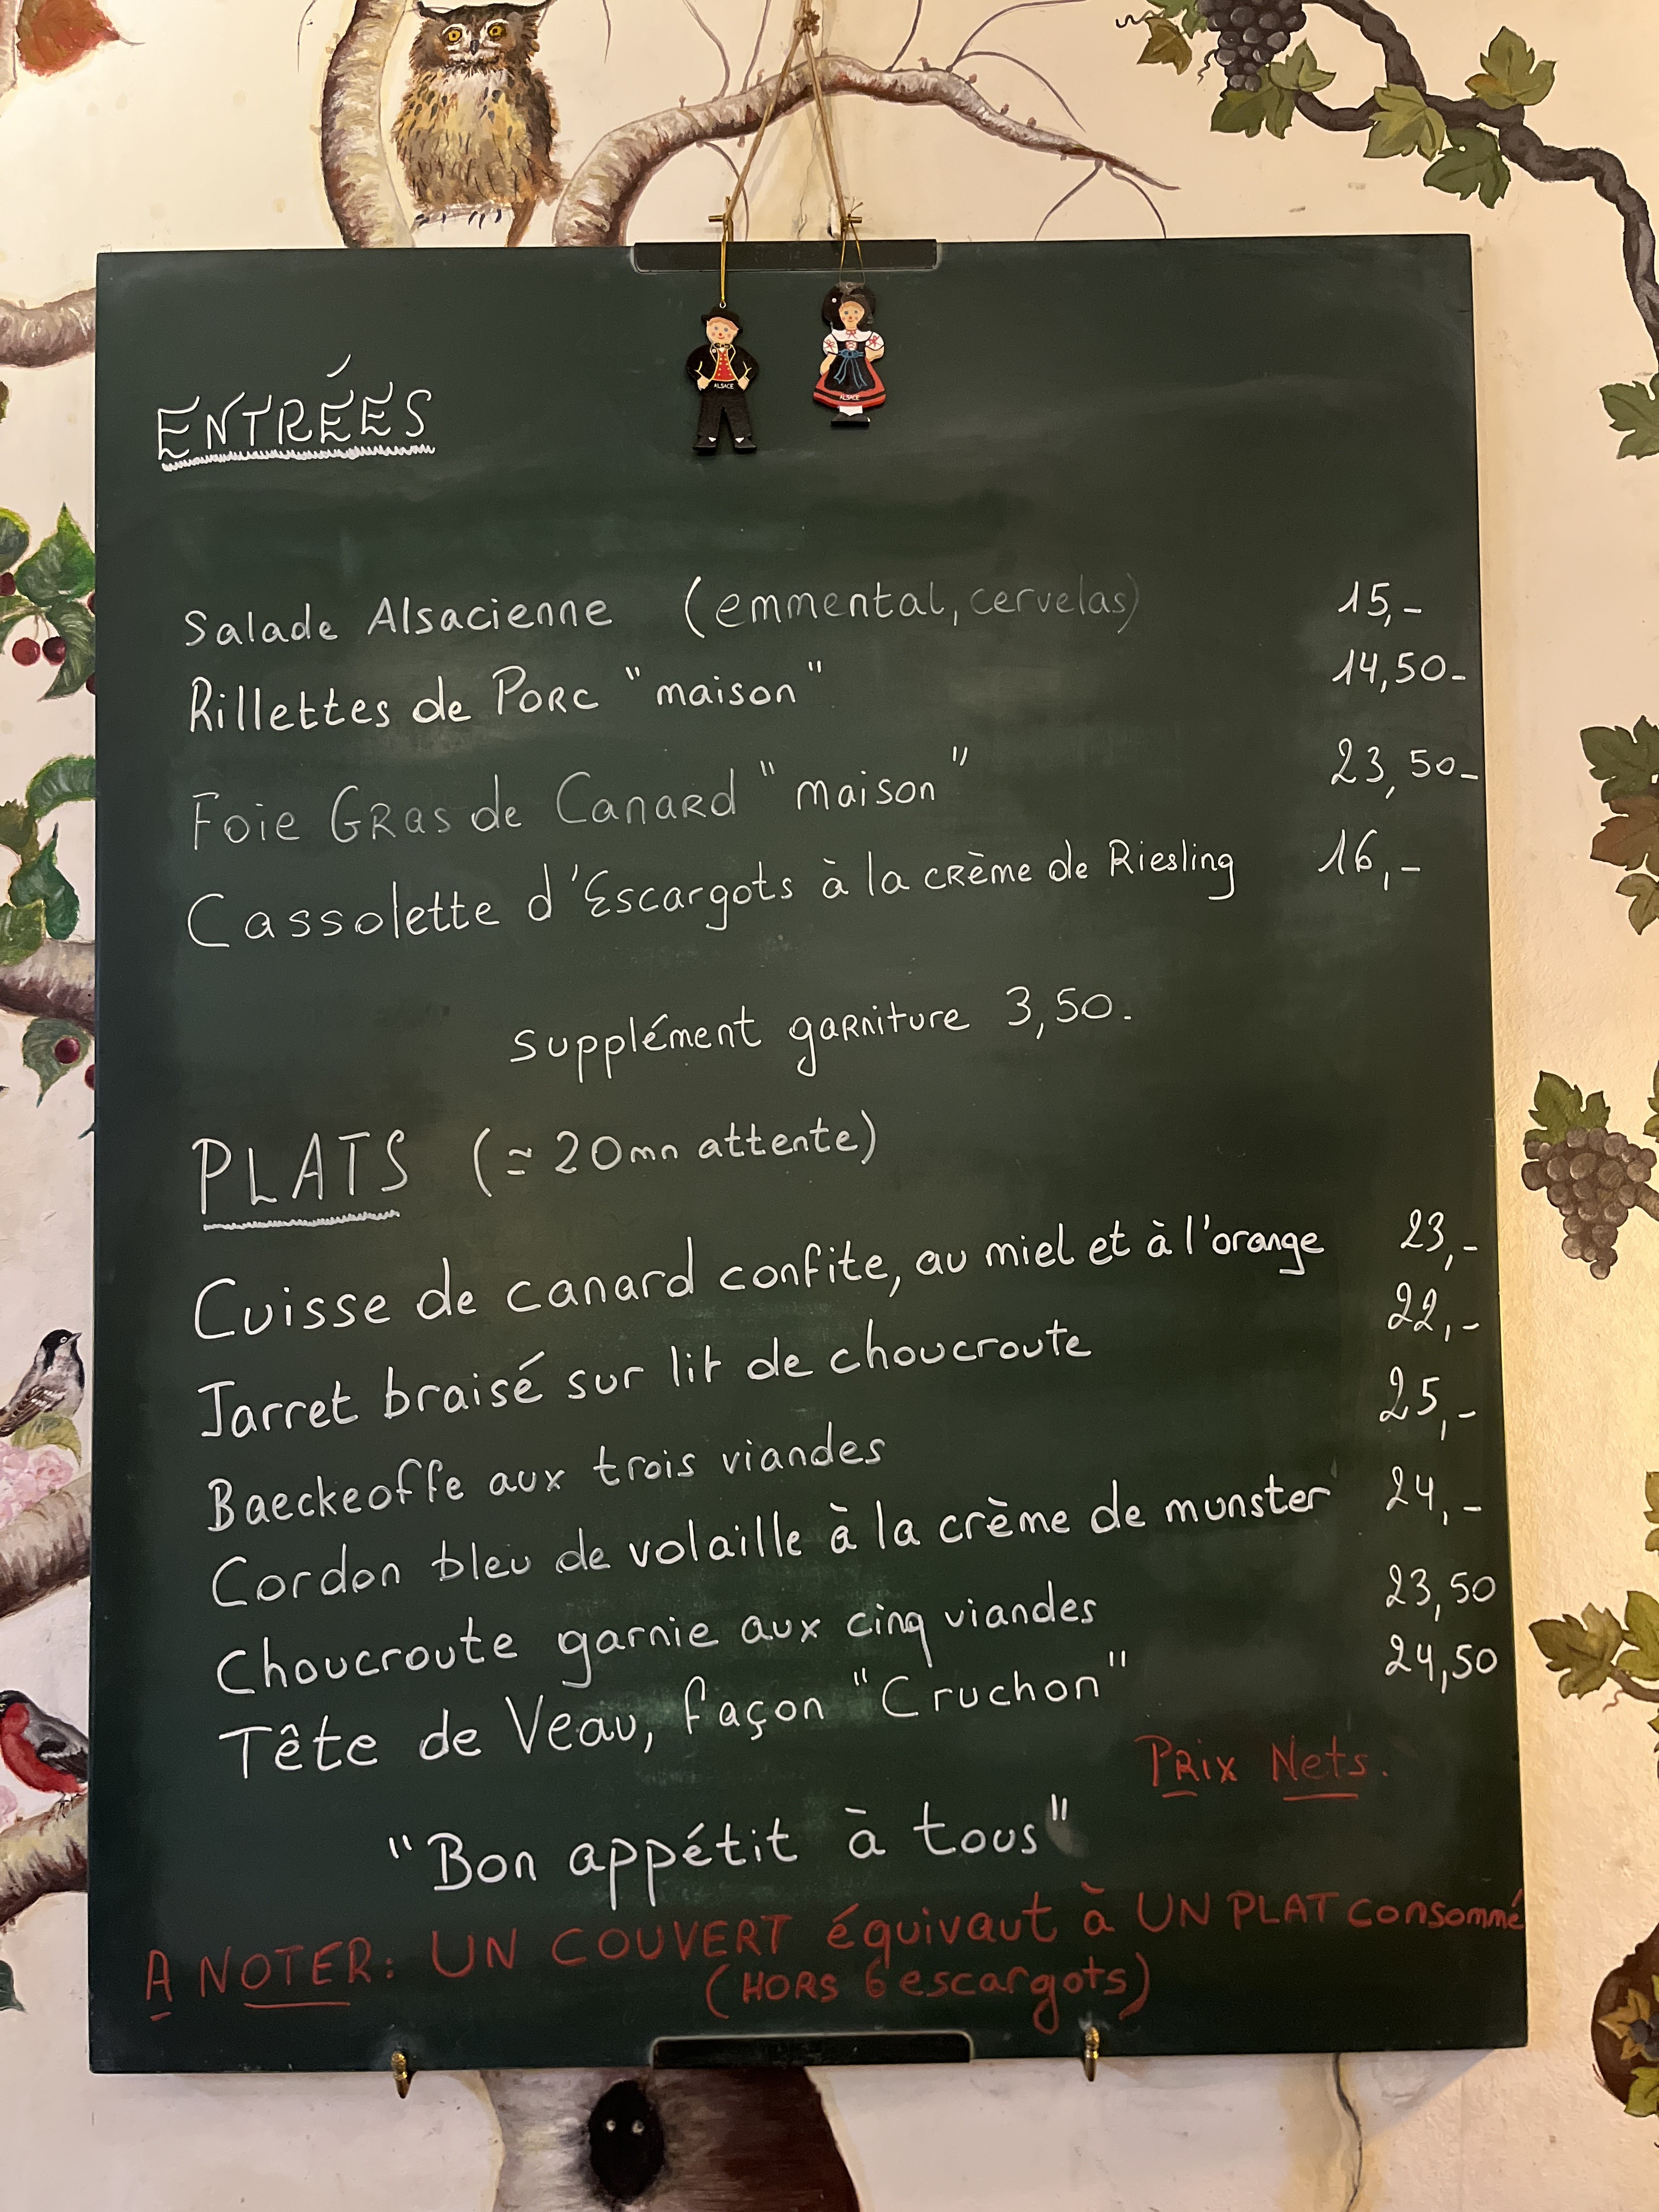 ALSACE
ALSACE
ENTRÉES
Salade Alsacienne (emmental, cervelas) 15,-
Rillettes de Porc "maison" 14,50-
Foie Gras de Canard "maison" 23,50-
Cassolette d'Escargots à la crème de Riesling 16,-
supplément garniture 3,50.
PLATS (≈ 20mn attente)
Cuisse de canard confite, au miel et à l'orange 23,-
Jarret braisé sur lit de choucroute 22,-
Baeckeoffe aux trois viandes 25,-
Cordon bleu de volaille à la crème de munster 24,-
Choucroute garnie aux cinq viandes 23,50
Tête de Veau, façon "Cruchon" 24,50
Prix Nets.
"Bon appétit à tous"
A NOTER: UN COUVERT équivaut à UN PLAT consommé
(HORS 6 escargots)